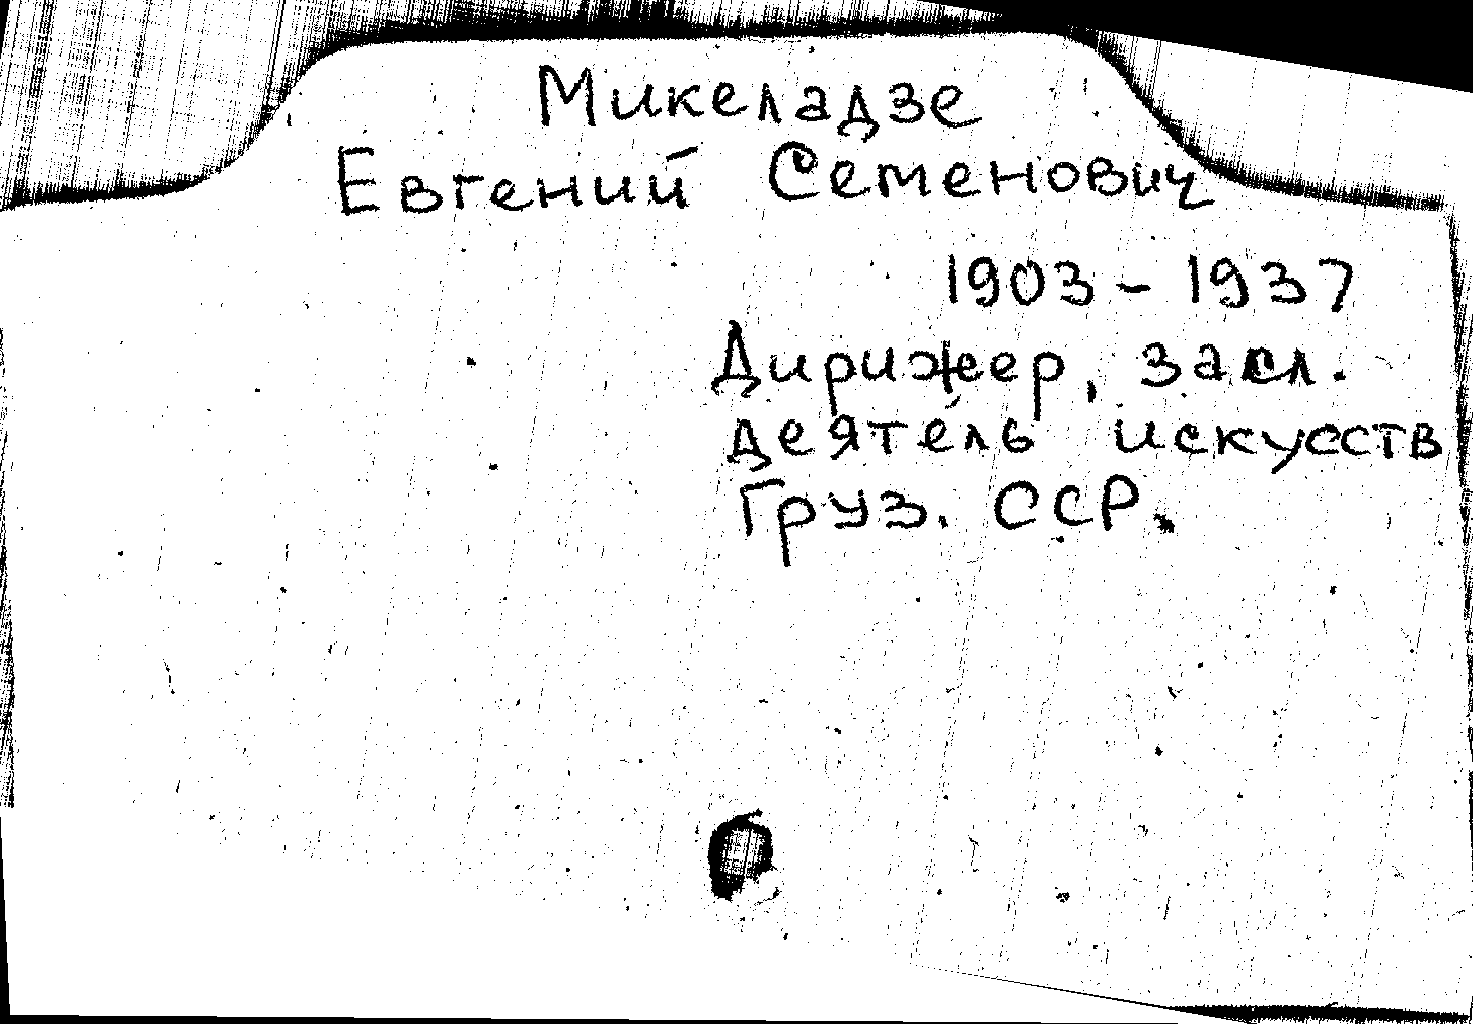 Микеладзе
Евгений Семенович
1903 - 1937
Дирижер, засл.
деятель искусств
Груз. ССР.